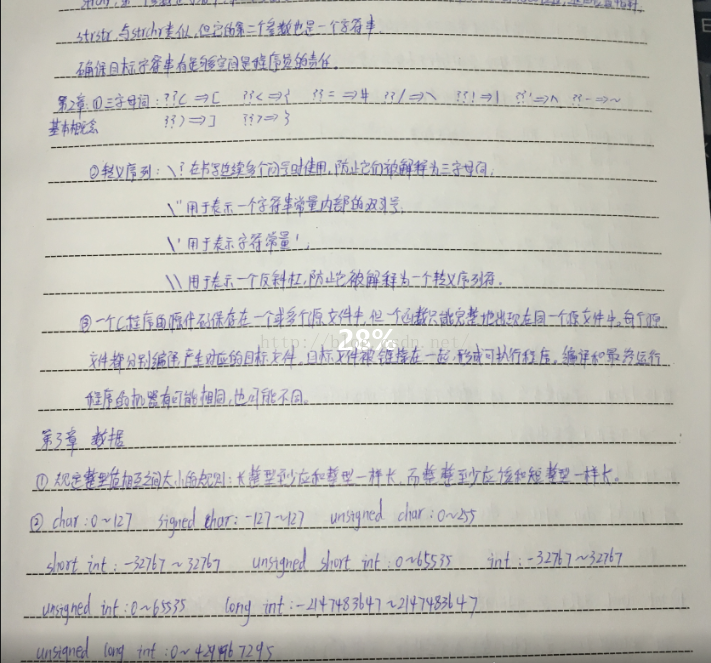 strstr,与strchr类似,但它的第二个参数也是一个字符串.
确保目标字符串有足够空间是程序员的责任.
第2章 ①三字母词: ??( ⇒ [ ??< ⇒ { ??= ⇒ # ??/ ⇒ \ ??! ⇒ | ??' ⇒ ^ ??- ⇒ ~
基本概念 ??) ⇒ ] ??> ⇒ }
②转义序列: \? 在书写连续多个问号时使用,防止它们被解释为三字母词.
\" 用于表示一个字符串常量内部的双引号.
\' 用于表示字符常量'.
\\ 用于表示一个反斜杠,防止它被解释为一个转义序列符.
③一个C程序的源代码保存在一个或多个源文件中,但一个函数只能完整地出现在同一个源文件中.每个源
文件都分别编译产生对应的目标文件.目标文件被链接在一起,形成可执行程序.编译和最终运行
程序的机器有可能相同,也可能不同.
28%
第3章 数据
①规定整型值相互之间大小的规则:长整型至少应和整型一样长,而整型至少应该和短整型一样长.
② char:0~127 signed char:-127~127 unsigned char:0~255
short int:-32767~32767 unsigned short int:0~65535 int:-32767~32767
unsigned int:0~65535 long int:-2147483647~2147483647
unsigned long int:0~4294967295